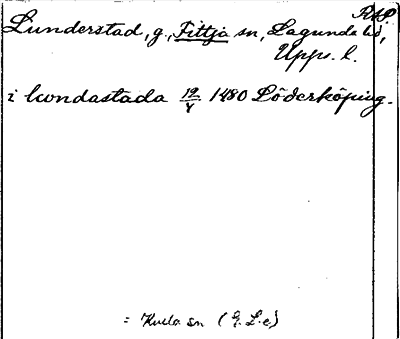 RAP
Lunderstad, g., Fittja sn, Lagunda hd,
Upps. l.
i lwndastada 12/4 1480 Söderköping.
= Kulla sn (G. L-e)